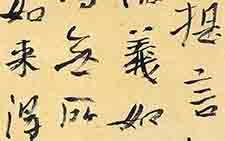 提言
義如
無所
如來得